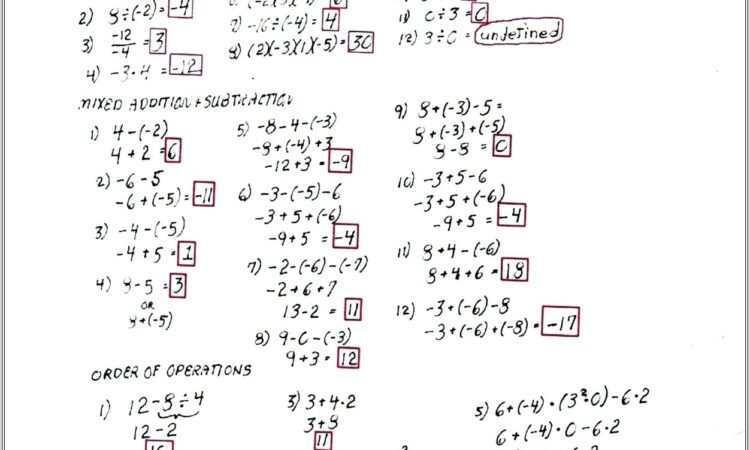 2) 8÷(-2)=-4
3) -12/-4 = 3
4) -3·4 = -12
7) -16÷(-4) = 4
8) (2)(-3)(1)(-5) = 30
11) 0÷3 = 0
12) 3÷0 = undefined
MIXED ADDITION + SUBTRACTION
1) 4-(-2)
4+2 = 6
2) -6-5
-6+(-5) = -11
3) -4-(-5)
-4+5 = 1
4) 8-5 = 3
OR
8+(-5)
5) -8-4-(-3)
-8+(-4)+3
-12+3 = -9
6) -3-(-5)-6
-3+5+(-6)
-9+5 = -4
7) -2-(-6)-(-7)
-2+6+7
13-2 = 11
8) 9-0-(-3)
9+3 = 12
9) 8+(-3)-5=
8+(-3)+(-5)
8-8 = 0
10) -3+5-6
-3+5+(-6)
-9+5 = -4
11) 8+4-(-6)
8+4+6 = 18
12) -3+(-6)-8
-3+(-6)+(-8) = -17
ORDER OF OPERATIONS
1) 12-8÷4
12-2
3) 3+4·2
3+8
11
5) 6+(-4)·(3²·0)-6·2
6+(-4)·0-6·2